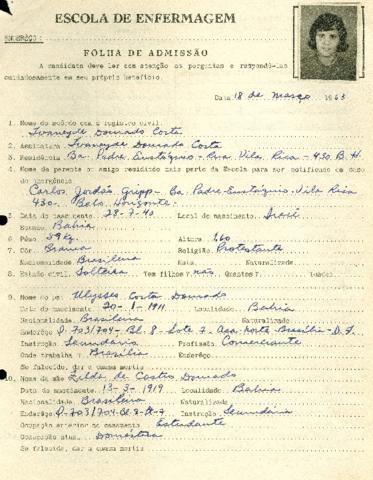 ESCOLA DE ENFERMAGEM
ENDERÊÇO:
FOLHA DE ADMISSÃO
A candidata deve ler com atenção as perguntas e respondê-las
cuidadosamente em seu próprio benefício.
Data 18 de março 1963
1. Nome de acôrdo com o registro civil.
Ivoneyde Dourado Costa
2. Assinatura Ivoneyde Dourado Costa
3. Residência Ba. Padre Eustáquio - Rua Vila Rica - 430 B.H.
4. Nome de parente ou amigo residindo mais perto da Escola para ser notificado em caso
de emergência
Carlos Jordão Gripp - Ba. Padre Eustáquio. Vila Rica
430. Belo Horizonte.
5. Data do nascimento 28-7-40 Local do nascimento Irecê
Estado Bahia
6. Pêso 59 kg. Altura 1.60
7. Côr Branca Religião Protestante
Nacionalidade Brasileira Nata Naturalizada
8. Estado civil Solteira Tem filhos? não Quantos? Idades
9. Nome do pai Ulysses Costa Dourado
Data do nascimento 20-1-1911 Localidade Bahia
Nacionalidade Brasileira Naturalizado
Enderêço Q-703/704- Bl. 8 - Lote 7 Asa norte Brasília - D.F.
Instrução Secundária Profissão Comerciante
Onde trabalha? Brasília Enderêço
Se falecido, dar a causa mortis
10. Nome da mãe Zilda de Castro Dourado
Data do nascimento 13-3-1919 Localidade Bahia
Nacionalidade Brasileira Naturalizada
Enderêço Q-703/704-Bl.8-Lt-7 Instrução Secundária
Ocupação anterior ao casamento Estudante
Ocupação atual Doméstica
Se falecida, dar a causa mortis